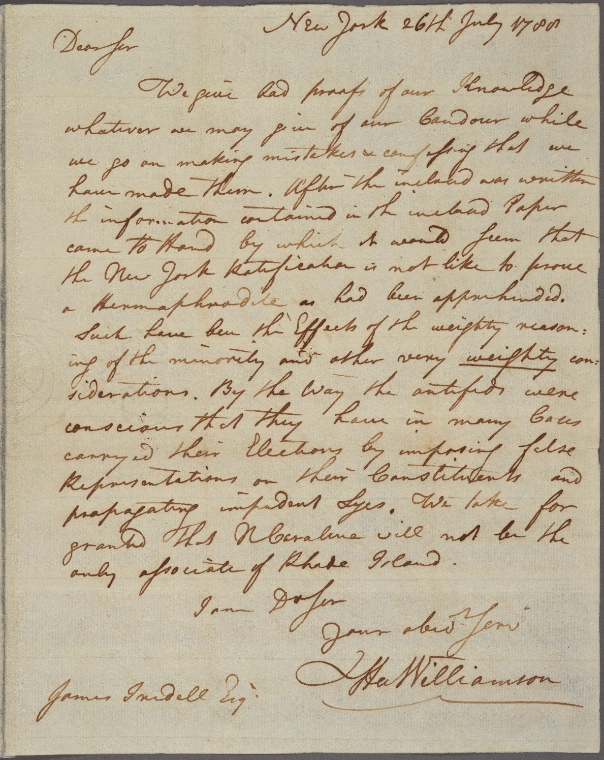 New York 26th July 1788
Dear Sir
We give bad proofs of our Knowledge
whatever we may give of our Candour while
we go on making mistakes & confessing that we
have made them. After the inclosed was written
th information contained in th inclosed Paper
came to Hand by which it would seem that
the New York Ratification is not like to prove
a Hermaphrodite as had been apprehended.
Such have been the Effects of the weighty reason:
ing of the minority and other very weighty con:
siderations. By the Way the antifeds were
conscious that they have in many Cases
carryed their Elections by imposing false
Representations on their Constituents and
propagating impudent Lyes. We take for
granted that NCaralina will not be the
only associate of Rhode Island.
I am Dr Sir
Your obedt Servt
Hu Williamson
James Iredell Esqr.